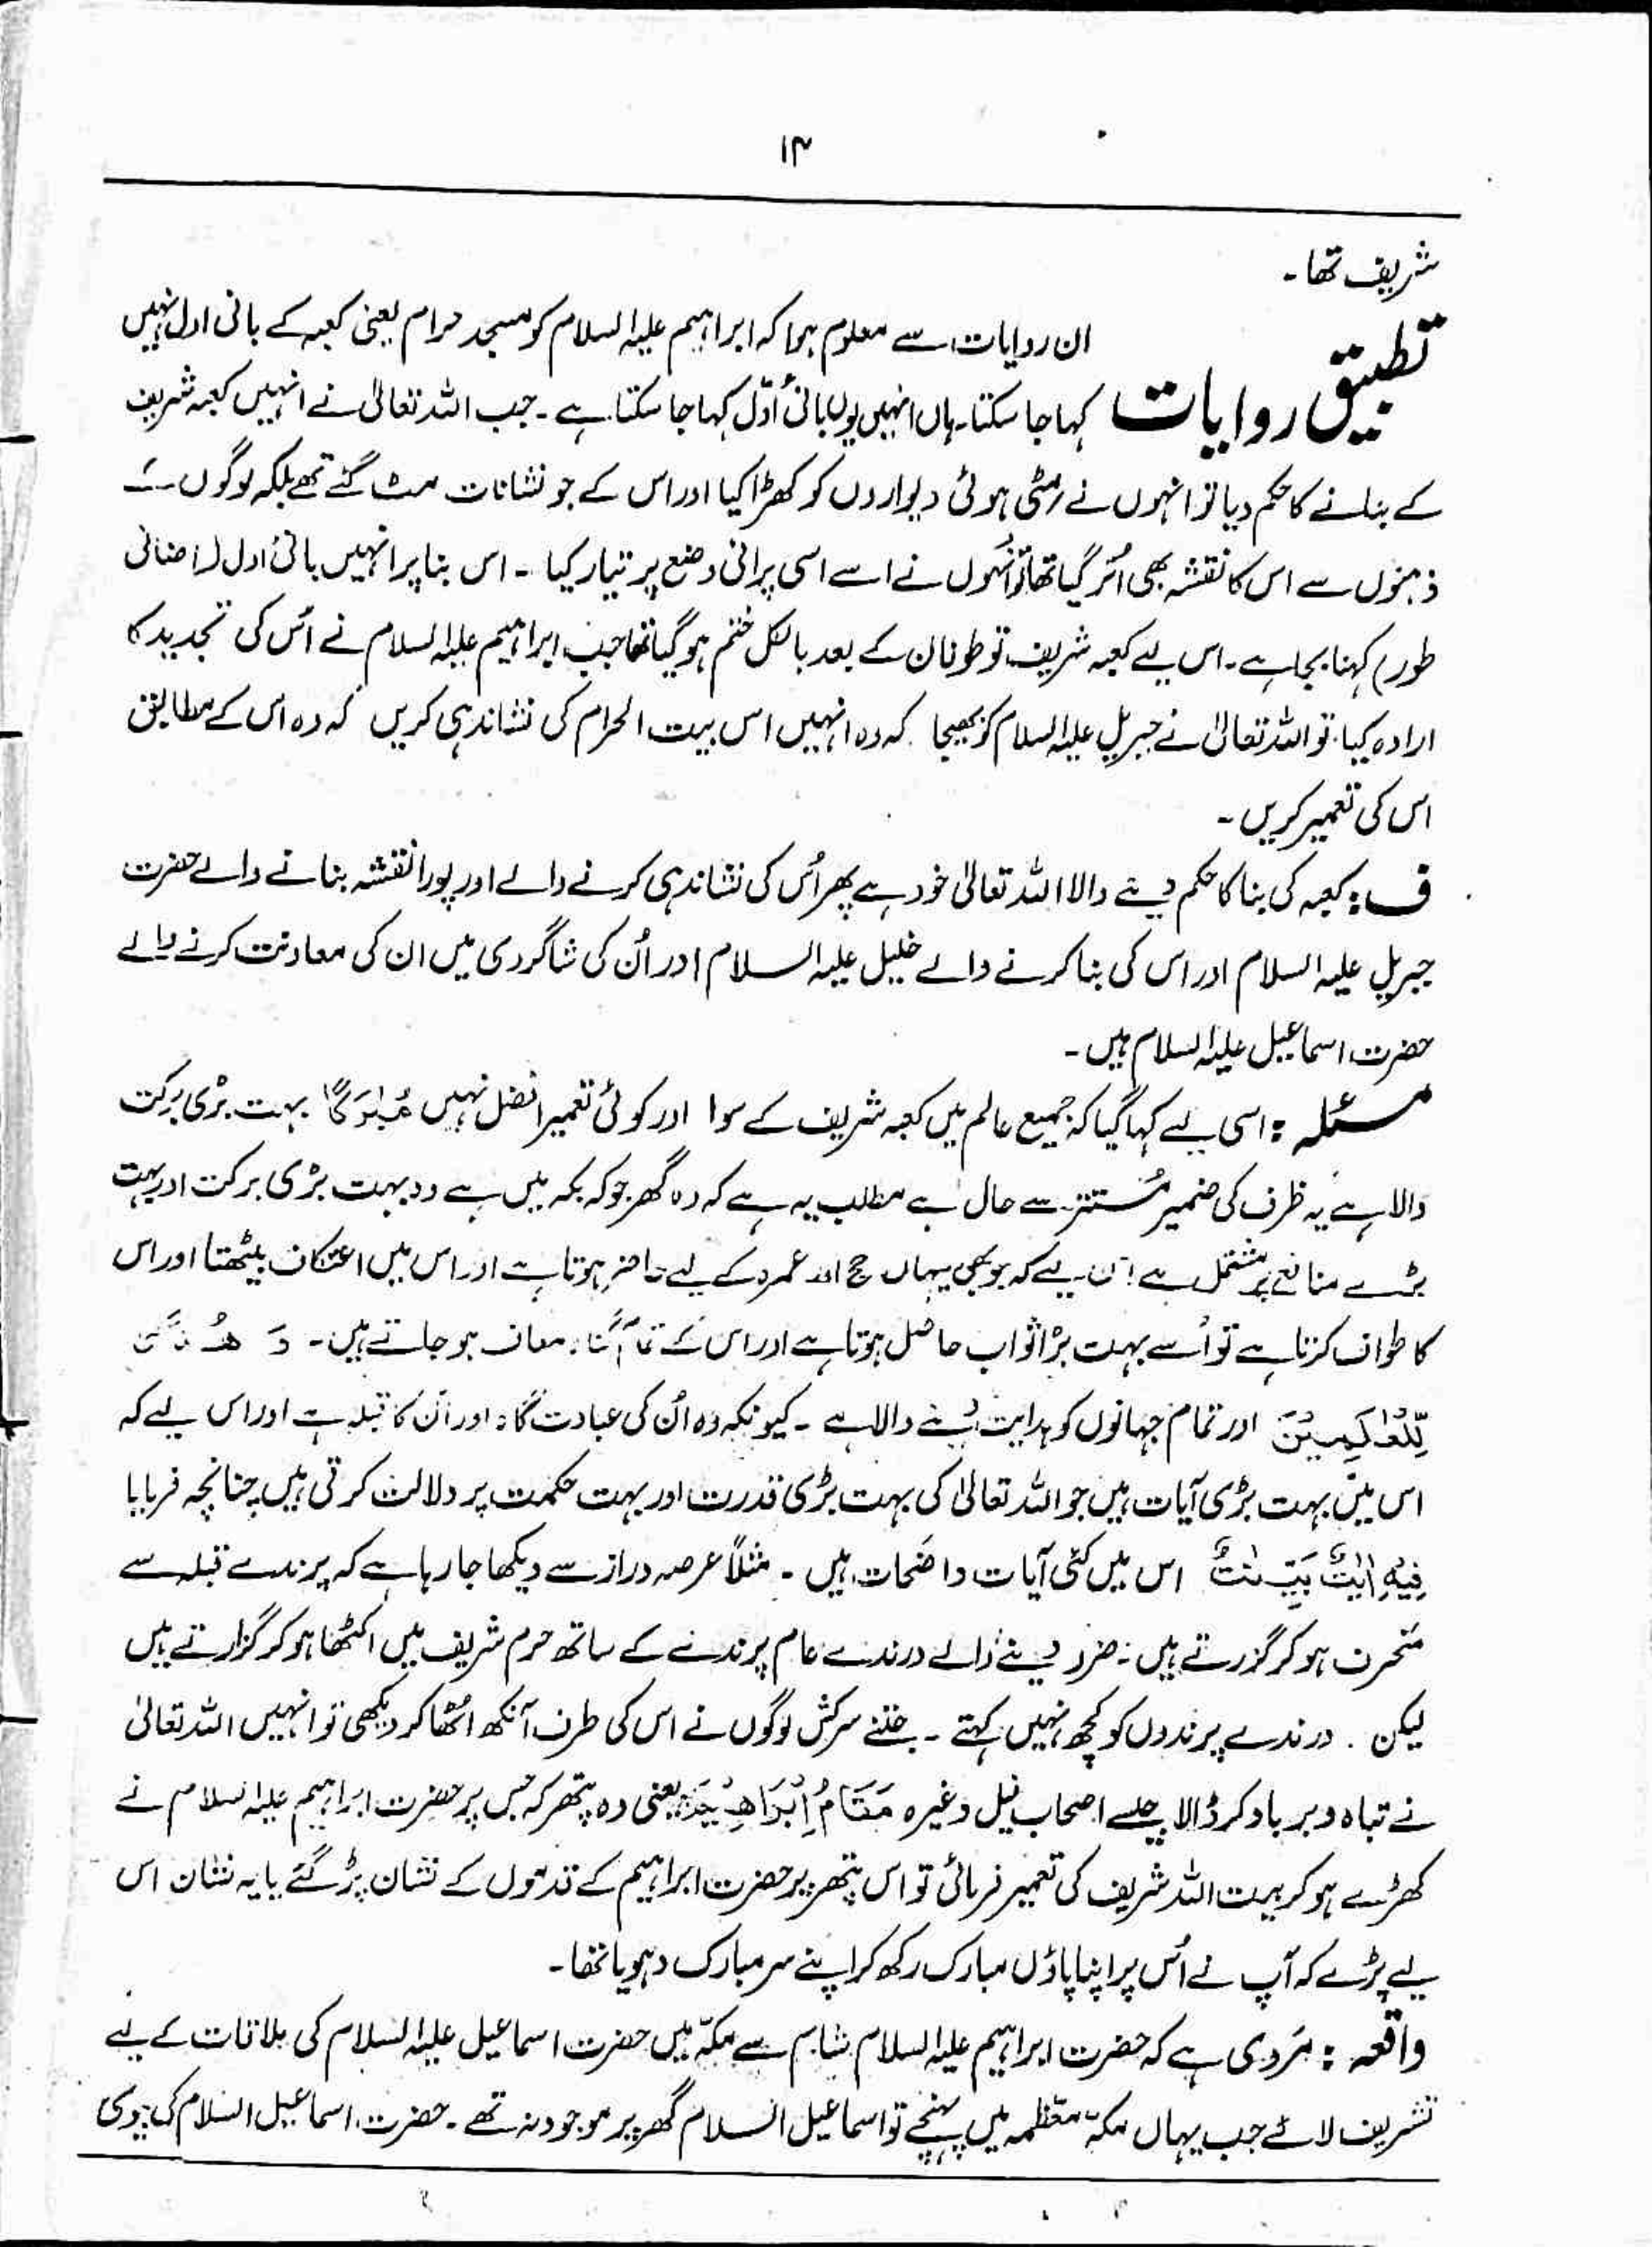 ۱۴
شریف تھا۔
تطبیق روایات ان روایات سے معلوم ہوا کہ ابراہیم علیہ السلام کو مسجد حرام یعنی کعبہ کے بانی اول نہیں
کہا جا سکتا۔ ہاں انہیں یوں بانیٔ اوّل کہا جا سکتا ہے۔ جب اللہ تعالیٰ نے انہیں کعبہ شریف
کے بنانے کا حکم دیا تو انہوں نے مٹی ہوئی دیواروں کو کھڑا کیا اور اس کے جو نشانات مٹ گئے تھے بلکہ لوگوں کے
ذہنوں سے اس کا نقشہ بھی اُتر گیا تھا تو اُنہوں نے اسے اسی پرانی وضع پر تیار کیا ۔ اس بنا پر انہیں بانیٔ اول (اضافی
طور) کہنا بجا ہے۔ اس لیے کعبہ شریف تو طوفان کے بعد بالکل ختم ہو گیا تھا جب ابراہیم علیہ السلام نے اُس کی تجدید کا
ارادہ کیا تو اللہ تعالیٰ نے جبریل علیہ السلام کو بھیجا کہ وہ انہیں اس بیت الحرام کی نشاندہی کریں کہ وہ اس کے مطابق
اس کی تعمیر کریں ۔
ف : کعبہ کی بنا کا حکم دینے والا اللہ تعالیٰ خود ہے پھر اُس کی نشاندہی کرنے والے اور پورا نقشہ بنانے والے حضرت
جبریل علیہ السلام اور اس کی بنا کرنے والے خلیل علیہ السلام اور اُن کی شاگردی میں ان کی معاونت کرنے والے
حضرت اسماعیل علیہ السلام ہیں ۔
مسئلہ : اسی لیے کہا گیا کہ جمیع عالم میں کعبہ شریف کے سوا اور کوئی تعمیر افضل نہیں مُبٰرَکًا بہت بڑی برکت
والا ہے یہ ظرف کی ضمیر مُستتر سے حال ہے مطلب یہ ہے کہ وہ گھر جو کہ بکہ میں ہے وہ بہت بڑی برکت اور بہت
بڑے منافع پر مشتمل ہے اس لیے کہ جو بھی یہاں حج اور عمرہ کے لیے حاضر ہوتا ہے اور اس میں اعتکاف بیٹھتا اور اس
کا طواف کرتا ہے تو اُسے بہت بڑا ثواب حاصل ہوتا ہے اور اس کے تمام گناہ معاف ہو جاتے ہیں۔ وَ هُدًى
لِّلْعٰلَمِيْنَ اور تمام جہانوں کو ہدایت دینے والا ہے ۔ کیونکہ وہ اُن کی عبادت گاہ اور اُن کا قبلہ ہے اور اس لیے کہ
اس میں بہت بڑی آیات ہیں جو اللہ تعالیٰ کی بہت بڑی قدرت اور بہت حکمت پر دلالت کرتی ہیں چنانچہ فرمایا
فِيْهِ اٰيٰتٌۢ بَيِّنٰتٌ اس میں کئی آیات واضحات ہیں ۔ مثلاً عرصہ دراز سے دیکھا جا رہا ہے کہ پرندے قبلہ سے
منحرف ہو کر گزرتے ہیں ۔ ضرر دینے والے درندے عام پرندے کے ساتھ حرم شریف میں اکٹھا ہو کر گزارتے ہیں
لیکن . درندے پرندوں کو کچھ نہیں کہتے ۔ جتنے سرکش لوگوں نے اس کی طرف آنکھ اٹھا کر دیکھی تو انہیں اللہ تعالیٰ
نے تباہ و برباد کر ڈالا جیسے اصحاب فیل وغیرہ مَقَامُ اِبْرَاهِيْمَ یعنی وہ پتھر کہ جس پر حضرت ابراہیم علیہ السلام نے
کھڑے ہو کر بیت اللہ شریف کی تعمیر فرمائی تو اس پتھر پر حضرت ابراہیم کے قدموں کے نشان پڑ گئے یا یہ نشان اس
لیے پڑے کہ آپ نے اُس پر اپنا پاؤں مبارک رکھ کر اپنے سر مبارک دہویا تھا۔
واقعہ : مَروی ہے کہ حضرت ابراہیم علیہ السلام شام سے مکہّ میں حضرت اسماعیل علیہ السلام کی ملاقات کے لیے
تشریف لائے جب یہاں مکہّ معظمہ میں پہنچے تو اسماعیل السلام گھر پر موجود نہ تھے ۔ حضرت اسماعیل السلام کی بیوی